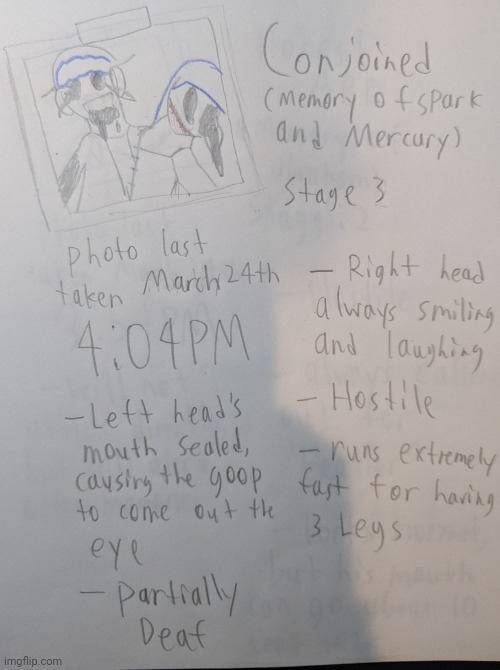 Conjoined
(Memory of Spark
and Mercury)
Stage 3
photo last
taken March 24th
4:04PM
- Left head's
mouth sealed,
causing the goop
to come out the
eye
- partially
Deaf
- Right head
always smiling
and laughing
- Hostile
- runs extremely
fast for having
3 Legs
imgflip.com